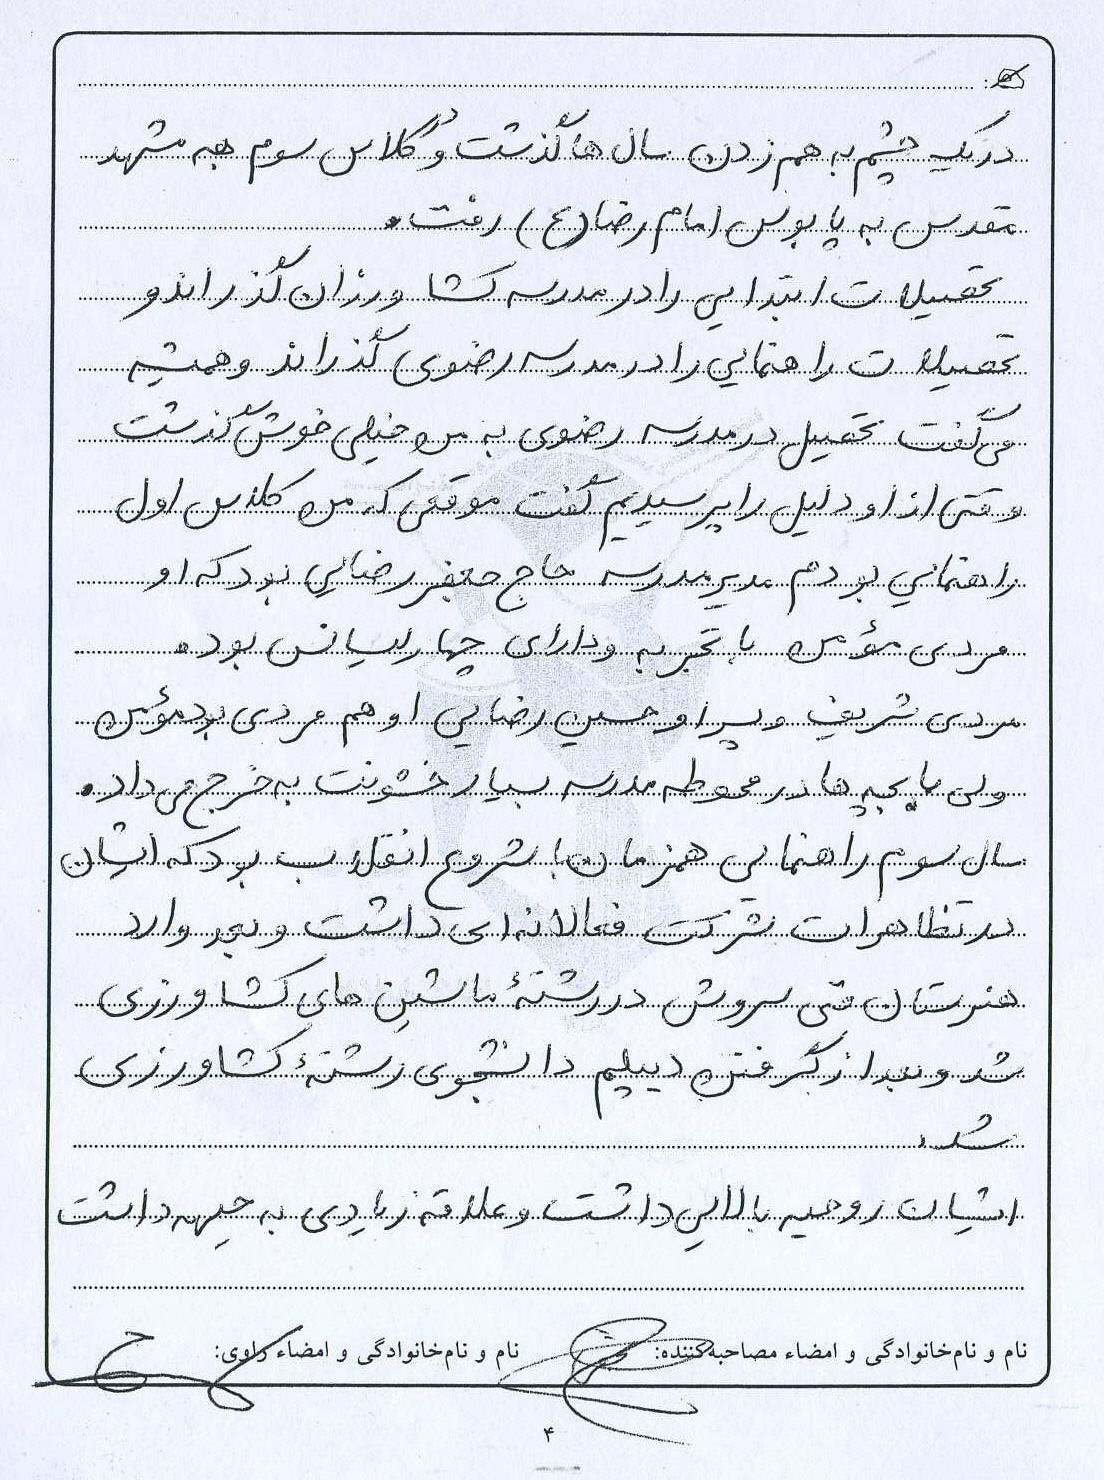 در یک چشم به هم زدن سال ها گذشت و در کلاس سوم به مشهد
مقدس به پا بوس امام رضا (ع) رفت.
تحصیلات ابتدایی را در مدرسه کشاورزان گذراند و
تحصیلات راهنمایی را در مدرسه رضوی گذراند و همیشه
می گفت تحصیل در مدرسه رضوی به من خیلی خوش گذشت
وقتی از او دلیل را پرسیدیم گفت موقعی که من کلاس اول
راهنمایی بودم مدیر مدرسه حاج جعفر رضائی بود که او
مردی مؤمن با تجربه و دارای چهار لیسانس بود.
مردی شریف و پسر او حسین رضایی او هم مردی بود مؤمن
ولی با بچه ها در محوطه مدرسه بسیار خشونت به خرج می داد.
سال سوم راهنمایی همزمان با شروع انقلاب بود که ایشان
در تظاهرات شرکت فعالانه ای داشت و بعد وارد
هنرستان فنی سروش در رشتهٔ ماشین های کشاورزی
شد و بعد از گرفتن دیپلم دانشجوی رشتهٔ کشاورزی
شد.
ایشان روحیه بالایی داشت و علاقه زیادی به جبهه داشت
نام و نام‌خانوادگی و امضاء مصاحبه‌کننده: نام و نام‌خانوادگی و امضاء راوی:
۴